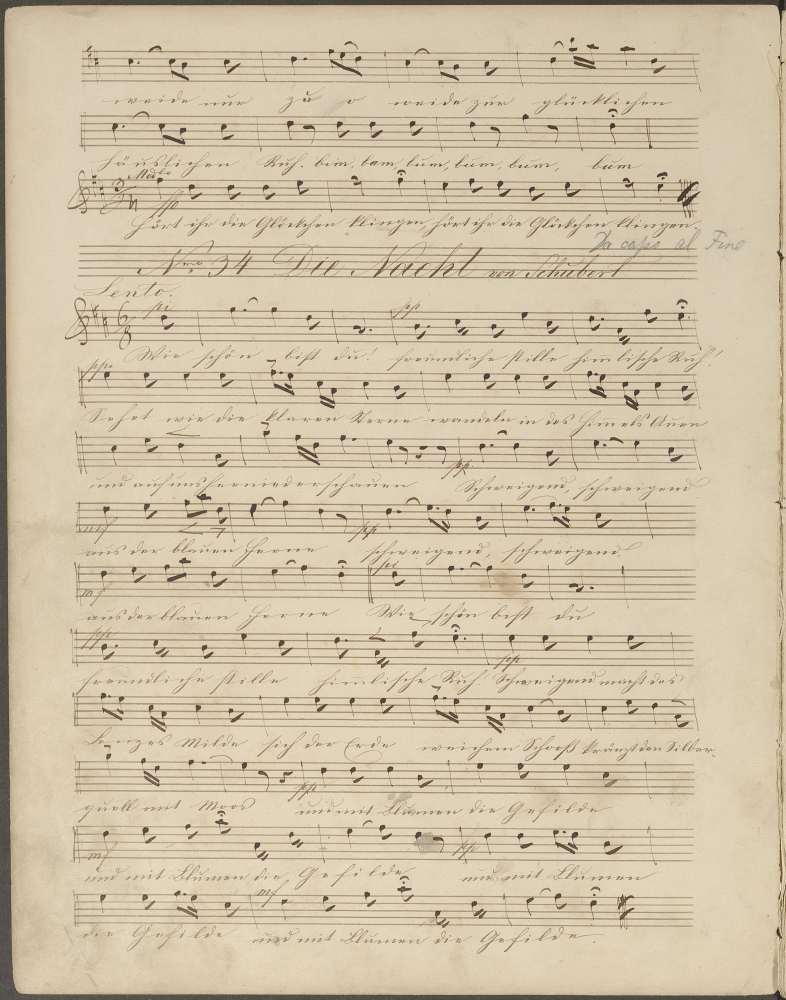 weide nur zu o weide zur glücklichen
häuslichen Ruh. bim, bam, bum, bum, bum, bum
Mod:to
pp
Hört ihr die Glöckchen klingen, hört ihr die Glöckchen klingen.
Da capo al Fine
Nro 34 Die Nacht von Schubert
Lento.
pp
Wie schön bist du! freundliche stille himlische Ruh!
pp
Sehet wie die klaren Sterne wandeln in des Himels Auen
und auf uns herniederschauen Schweigend, schweigend
pp
mf pp
aus der blauen Ferne schweigend, schweigend.
mf
aus der blauen Ferne Wie schön bist du
pp pp
freundliche stille himlische Ruh. Schweigend macht des
Lenzes Milde sich der Erde weichem Schooß kränzt den Silber-
pp
quell mit Moos und mit Blumen die Gefilde
mf pp
und mit Blumen die Gefilde und mit Blumen
mf
die Gefilde und mit Blumen die Gefilde.